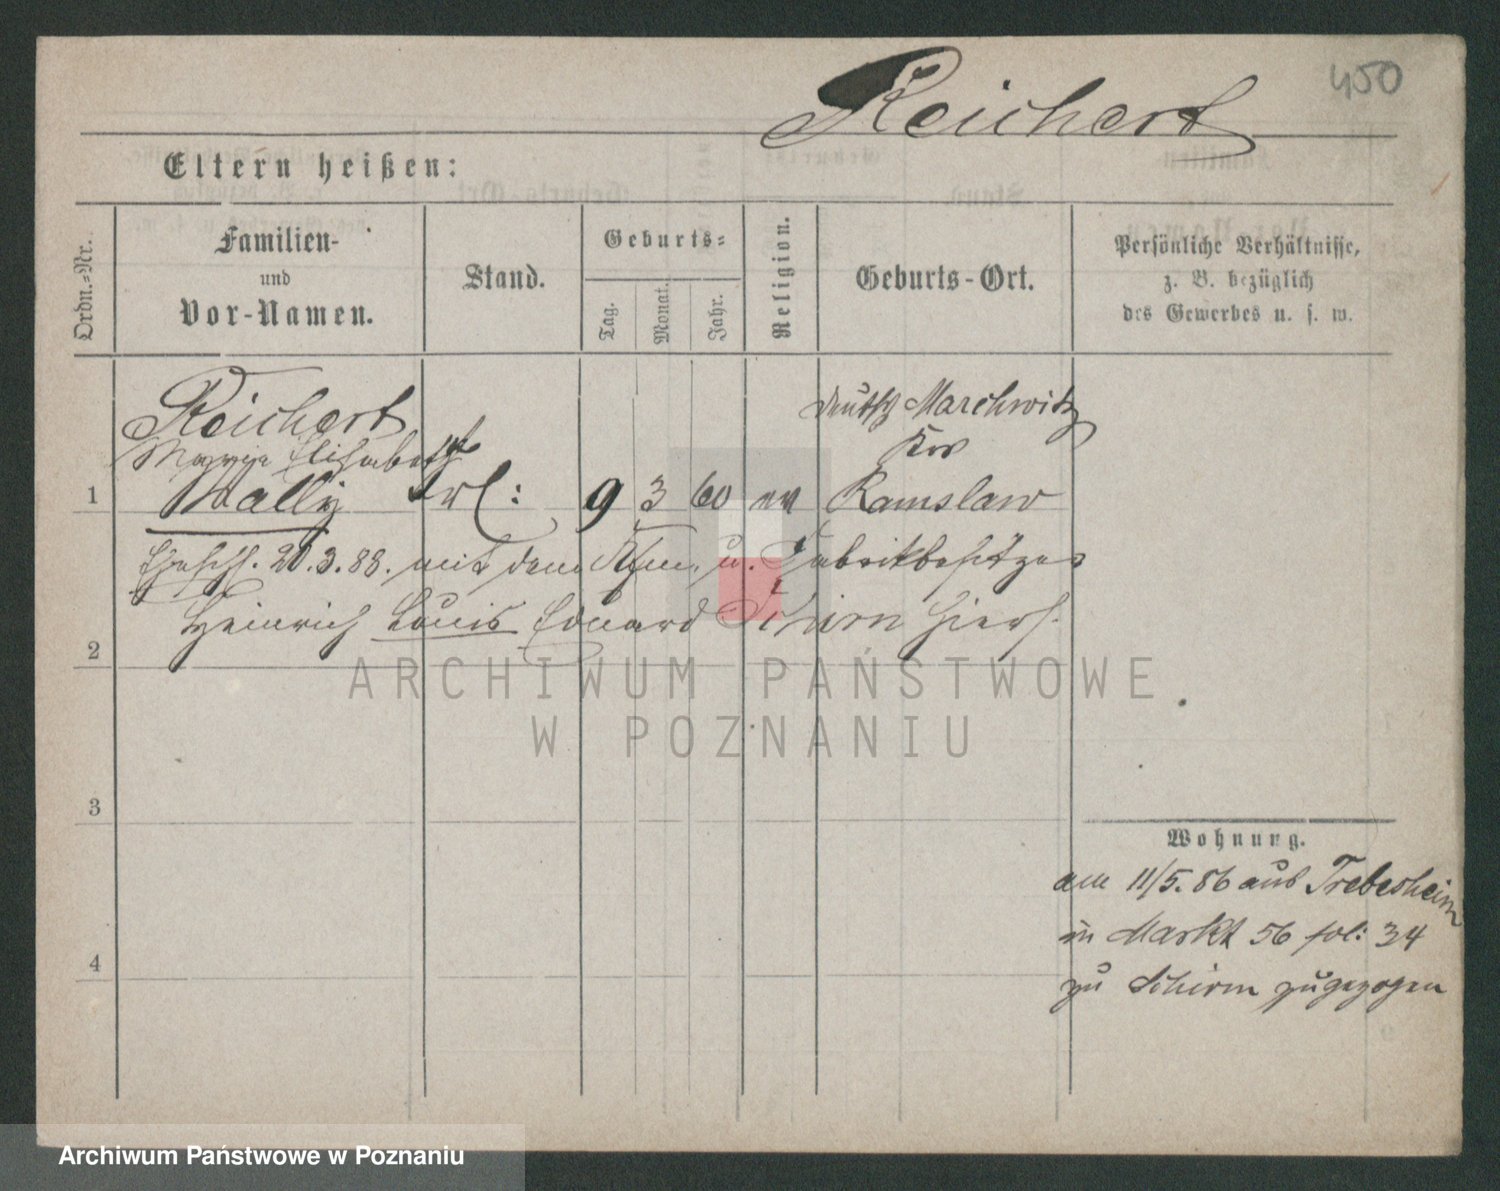 450
Reichert
Eltern heißen:
Ordn.-Nr.
Familien-
und
Vor-Namen.
Stand.
Geburts-
Tag.
Monat.
Jahr.
Religion.
Geburts-Ort.
Persönliche Verhältnisse,
z. B. bezüglich
des Gewerbes u. s. w.
Reichert
Elisabeth
1 Wally Frl: 9 3 60 ev
deutsch Marchwitz
Krs
Ramslaw
Ehesch. 20.3.88. mit dem Kfm. u. Fabrikbesitzer
2 Heinrich Louis Eduard Schirm hiers.
3
4
Wohnung.
am 11/5.86 aus Trebesheim
in Markt 56 fol: 34
zu Schirm zugezogen
ARCHIWUM PAŃSTWOWE
W POZNANIU
Archiwum Państwowe w Poznaniu